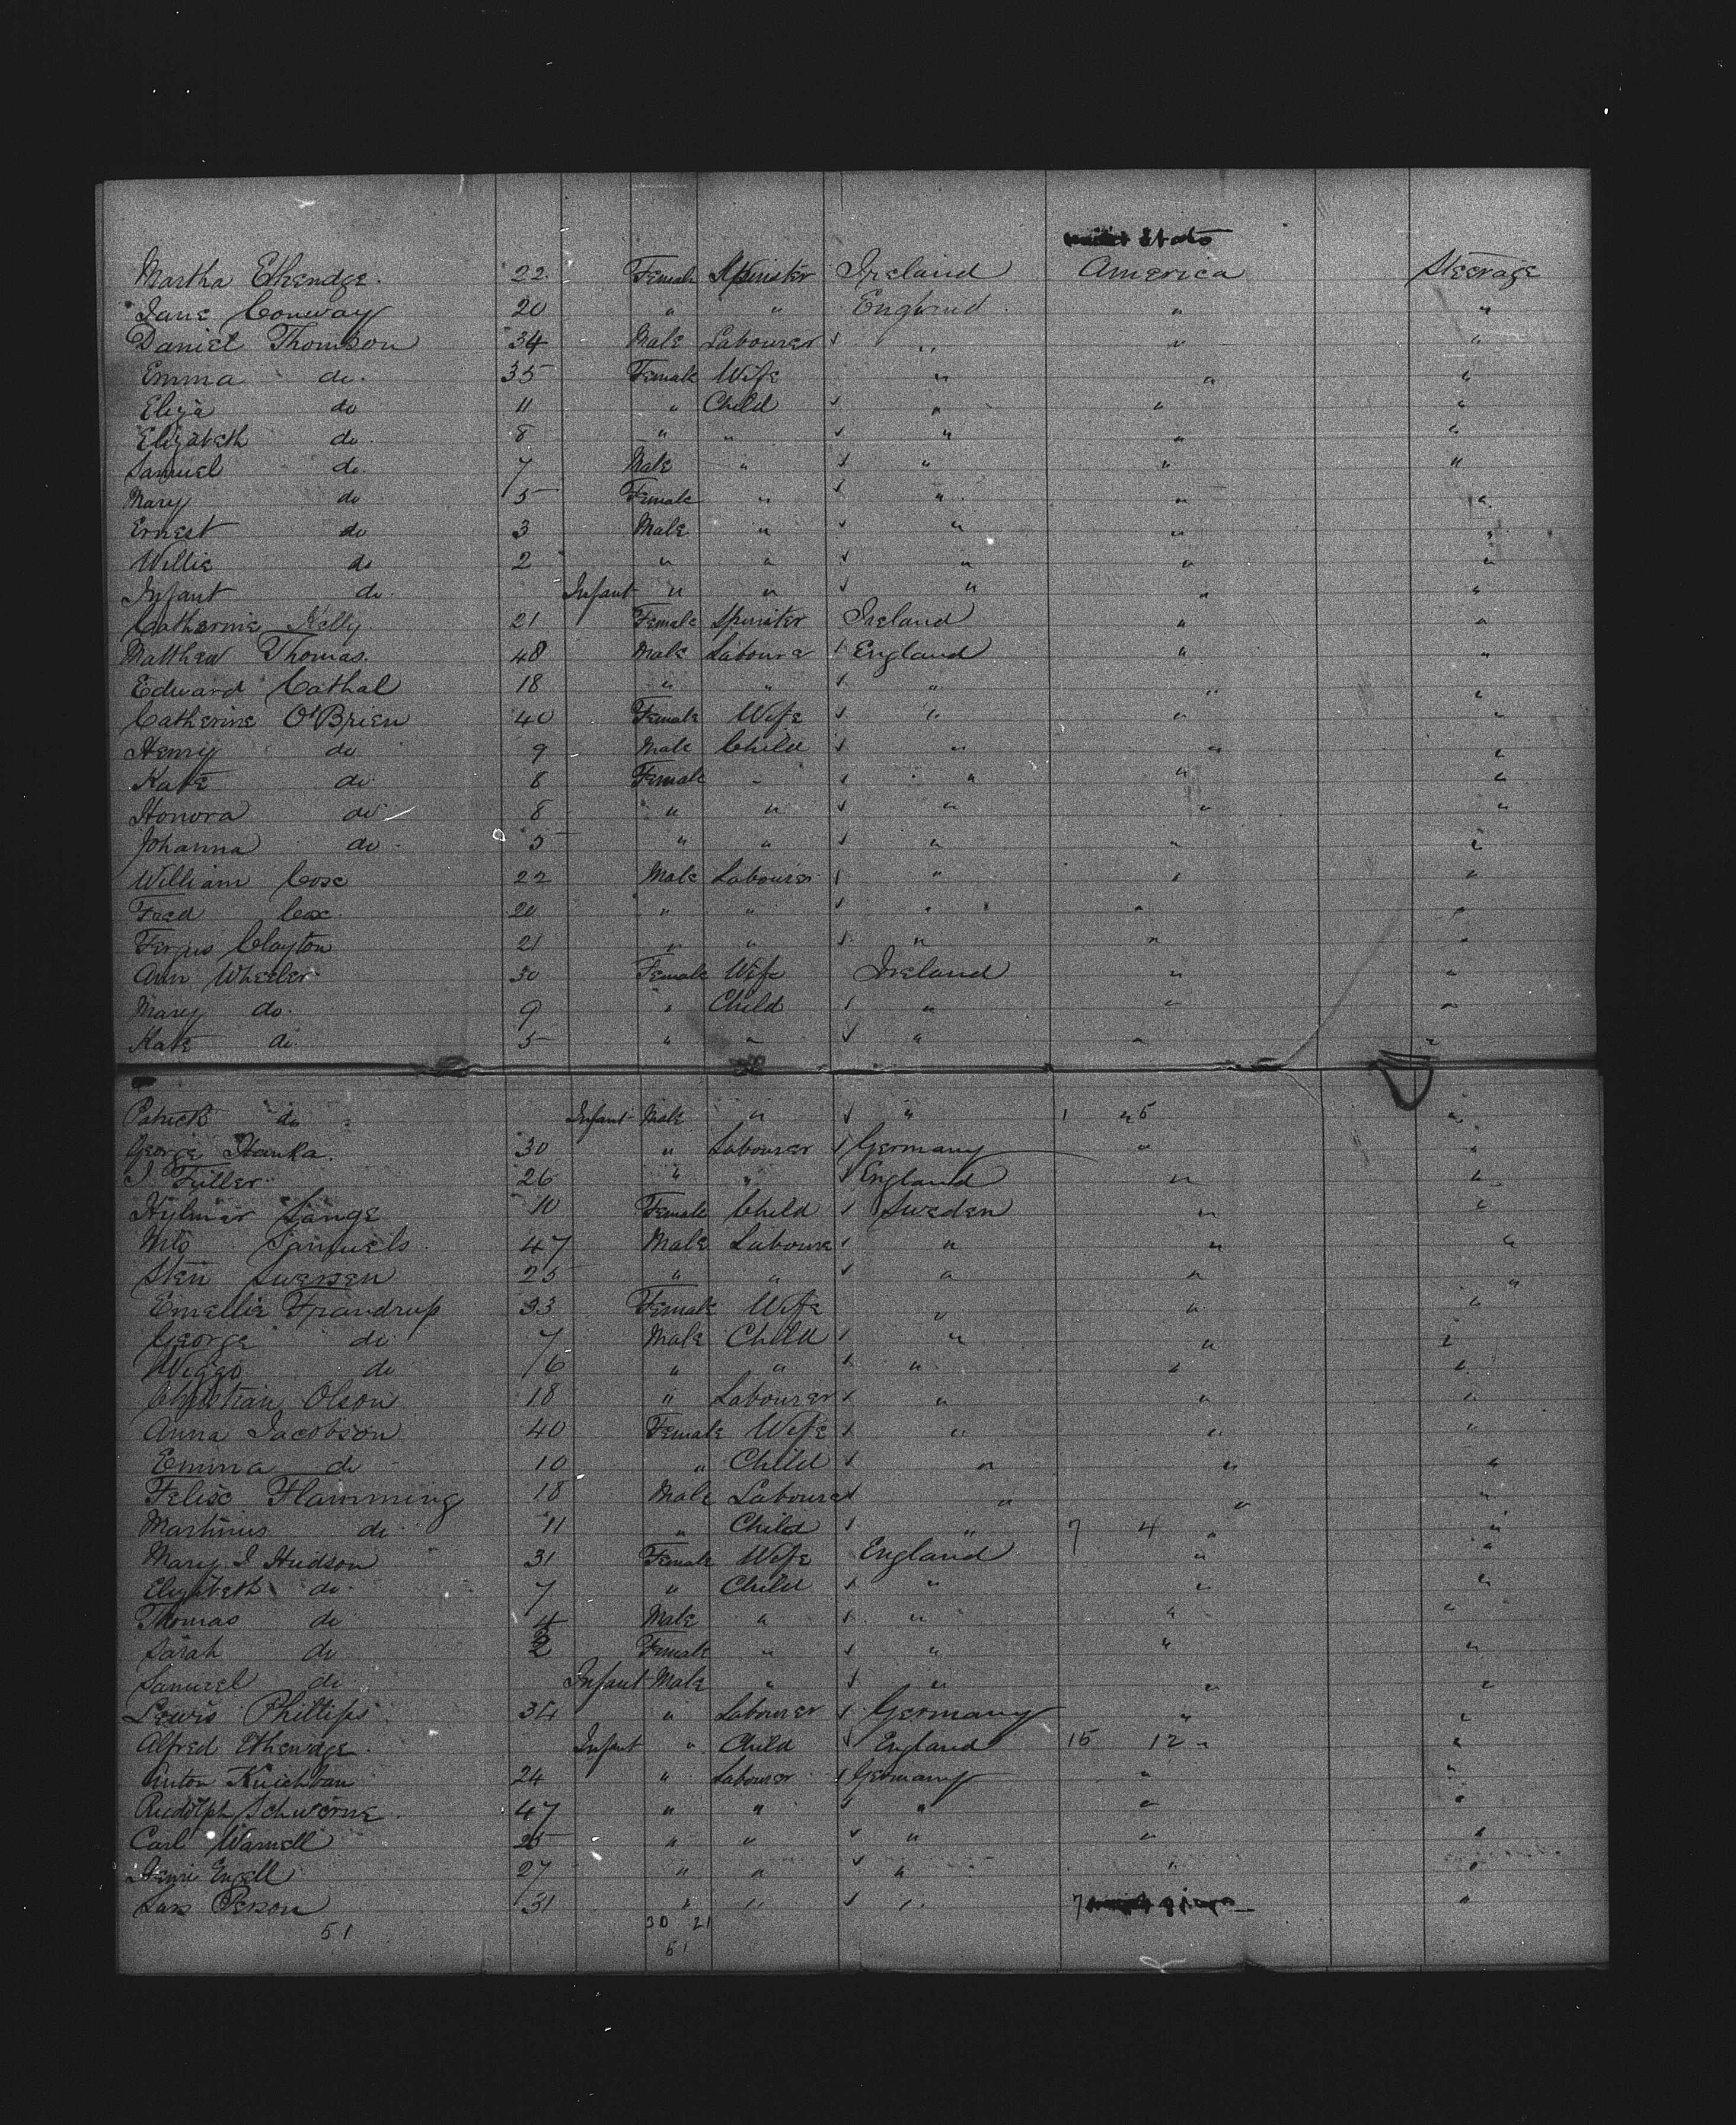 States
Martha Etheridge. 22 Female Spinster Ireland America Steerage
Jane Conway 20 " " England " "
Daniel Thomson 34 Male Labourer " " "
Emma do. 35 Female Wife " " "
Eliza do 11 " Child " " "
Elizabeth do. 8 " " " " "
Samuel do. 7 Male " " " "
Mary do 5 Female " " " "
Ernest do 3 Male " " " "
Willie do 2 " " " " "
Infant do. Infant " " " " "
Catherine Kelly 21 Female Spinster Ireland " "
Matthew Thomas. 48 Male Labourer England " "
Edward Cathal 18 " " " " "
Catherine O'Brien 40 Female Wife " " "
Henry do 9 Male Child " " "
Kate do 8 Female " " " "
Honora do 8 " " " " "
Johanna do - 5 " " " " "
William Cox 22 Male Labourer " " "
Fred Cox 20 " " " " "
Fergus Clayton 21 " " " " "
Ann Wheeler 30 Female Wife Ireland " "
Mary do. 9 " Child " " "
Kate do. 5 " " " " "
Patrick do Infant Male " " 1 " 5 "
George Hanka. 30 " Labourer Germany " "
J Fuller 26 " " England " "
Hylmar Lange 10 Female Child Sweden " "
Samuels 47 Male Laboure " " "
Sten Swensen 25 " " " " "
Emellie Frandrup 33 Female Wife " " "
George do 7 Male Child " " "
Wiggo do 6 " " " " "
Christian Olson 18 " Labourer " " "
Anna Jacobson 40 Female Wife " " "
Emma do 10 " Child " " "
Felix Flamming 18 Male Labourer " " "
Martinus do. 11 " Child " 7 4 " "
Mary J Hudson 31 Female Wife England " "
Elizabeth do. 7 " Child " " "
Thomas do 4 Male " " " "
Sarah do 2 Female " " " "
Samuel do Infant Male " " " "
Lewis Phillips 34 " Labourer Germany " "
Alfred Etheridge. Infant " Child England 15 12 " "
Anton 24 " Labourer Germany " "
Rudolph Schwerne. 47 " " " " "
Carl Warnell 25 " " " " "
Henri Engell 27 " " " " "
Lars Person 31 " " " 7 "
51 30 21
51